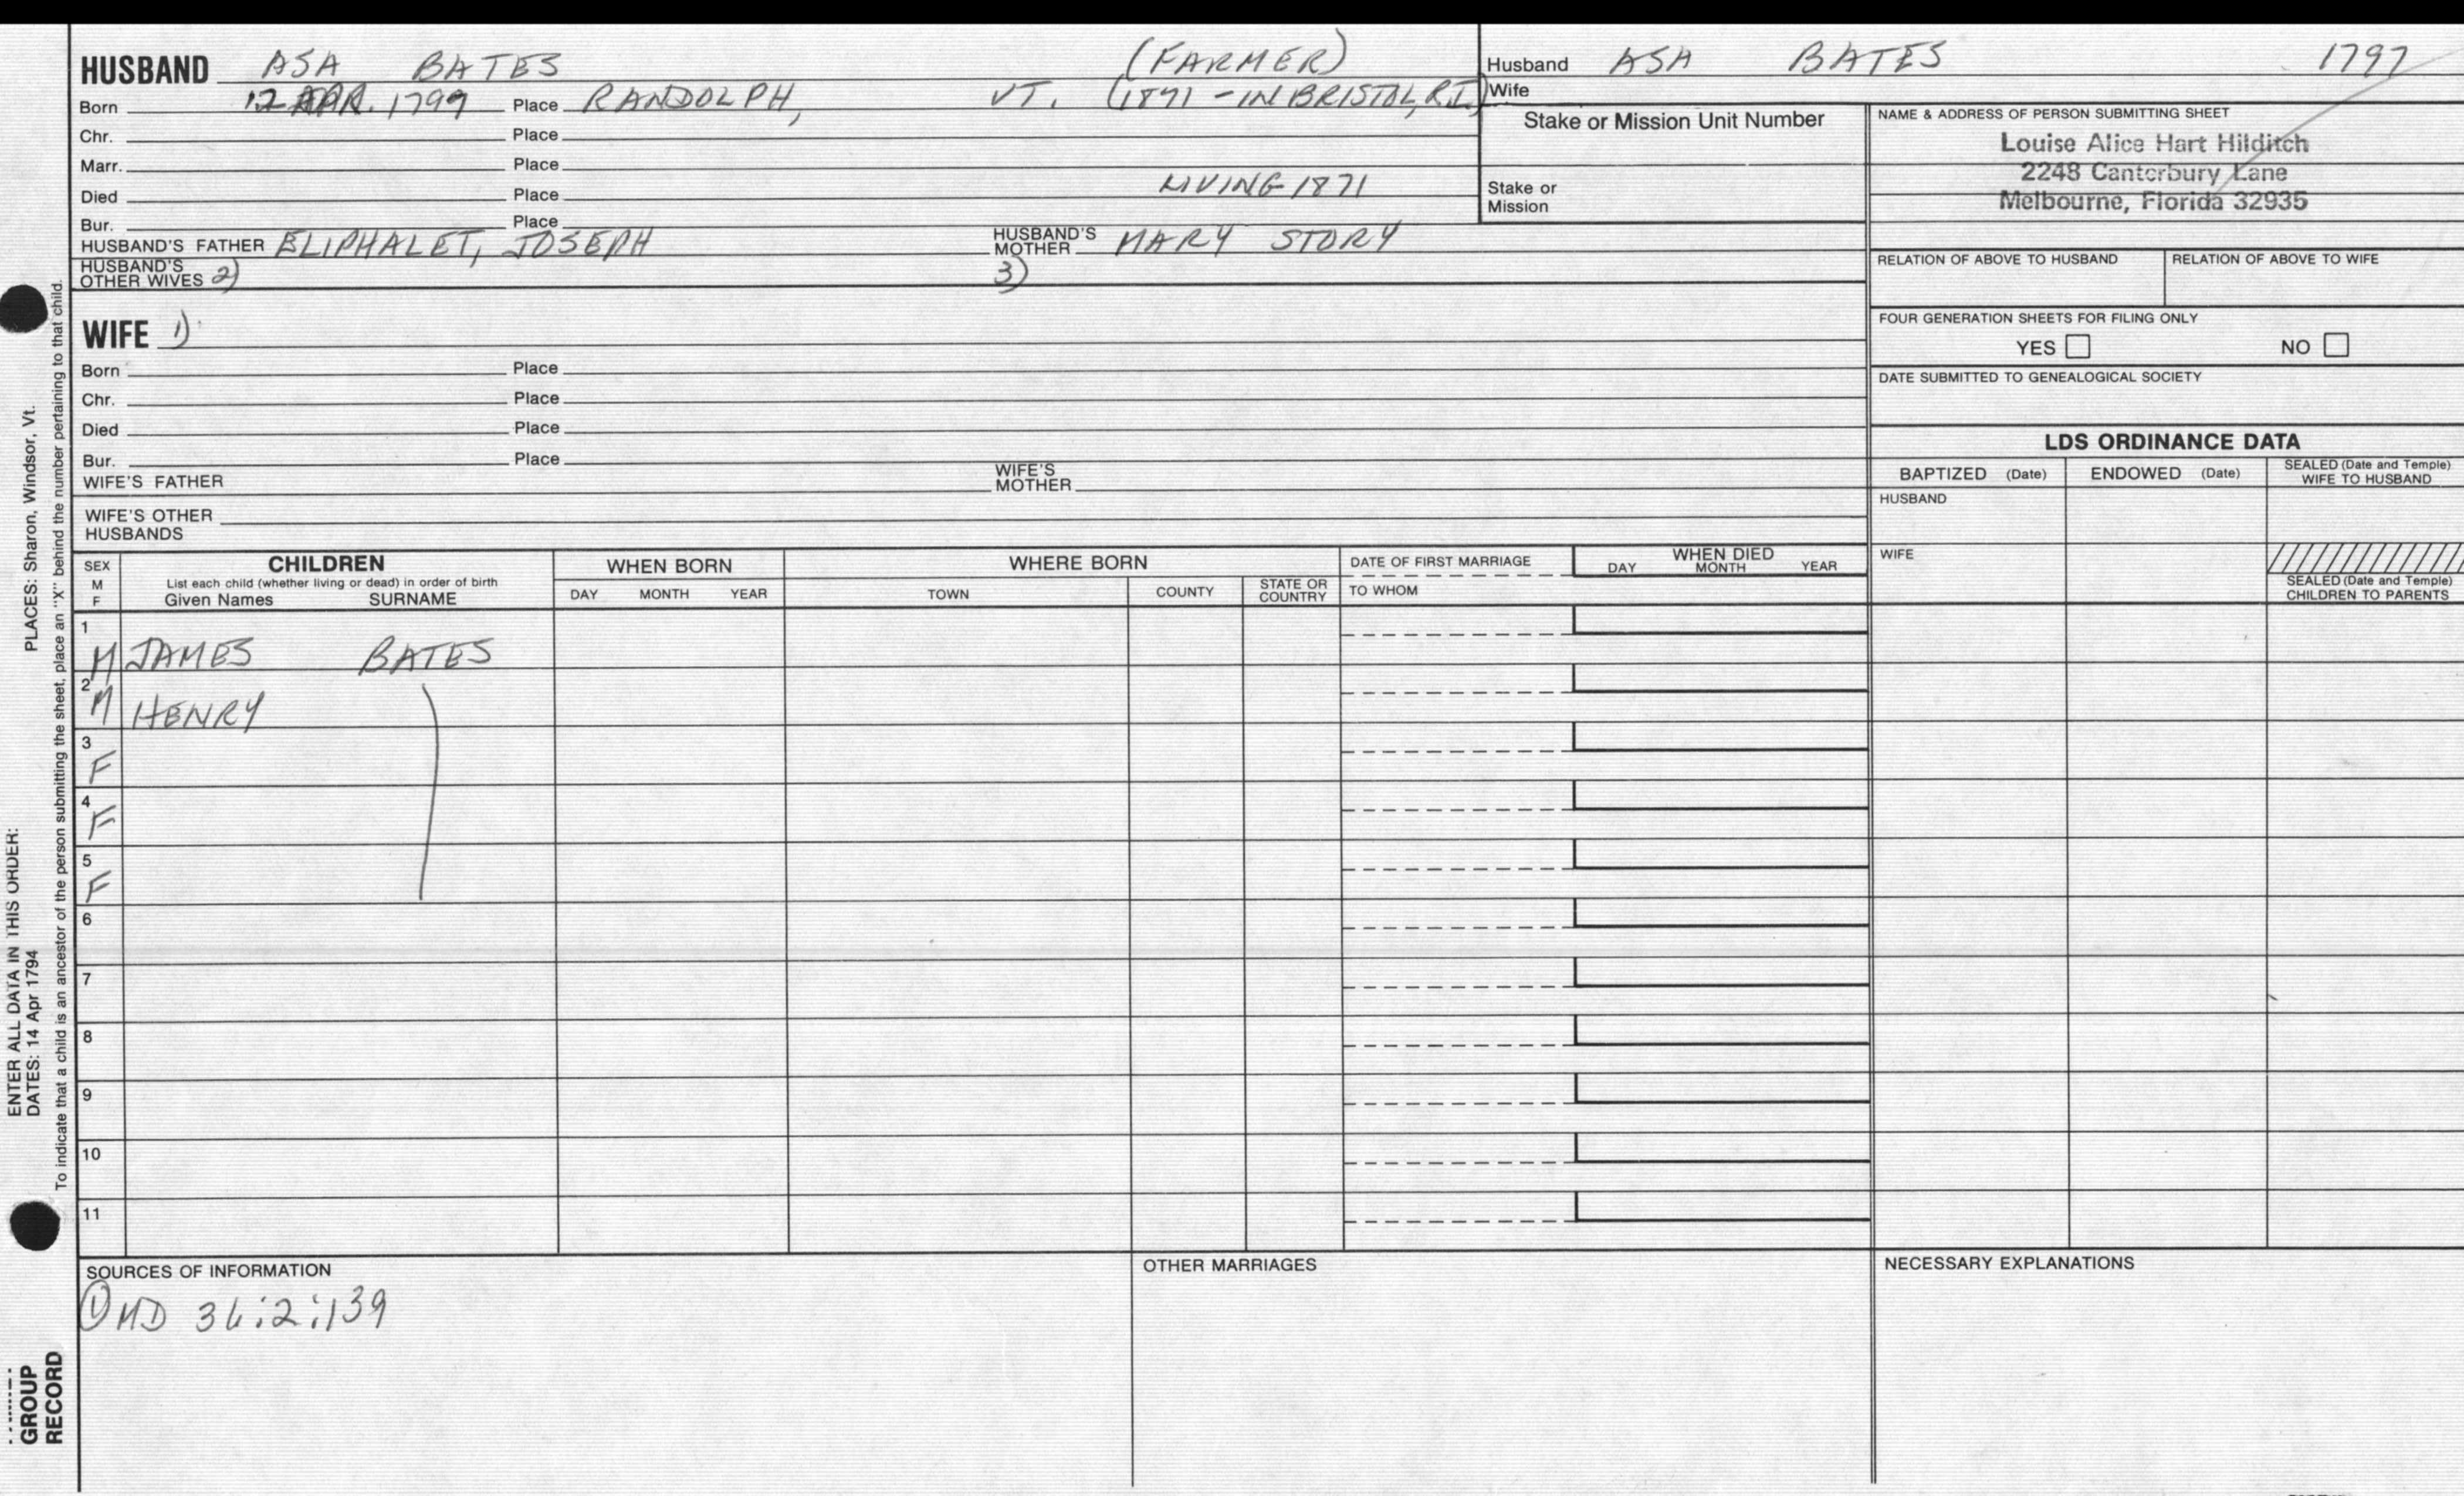 HUSBAND ASA BATES (FARMER)
Born 12 APR. 1799 Place RANDOLPH, VT. (1871 - IN BRISTOL, R.I.)
Chr. Place
Marr. Place
Died Place LIVING 1871
Bur. Place
HUSBAND'S FATHER ELIPHALET, JOSEPH HUSBAND'S MOTHER MARY STORY
HUSBAND'S OTHER WIVES 2) 3)
WIFE 1)
Born Place
Chr. Place
Died Place
Bur. Place
WIFE'S FATHER WIFE'S MOTHER
WIFE'S OTHER HUSBANDS
Husband ASA BATES 1797
Wife
Stake or Mission Unit Number
Stake or Mission
NAME & ADDRESS OF PERSON SUBMITTING SHEET
Louise Alice Hart Hilditch
2248 Canterbury Lane
Melbourne, Florida 32935
RELATION OF ABOVE TO HUSBAND RELATION OF ABOVE TO WIFE
FOUR GENERATION SHEETS FOR FILING ONLY
YES NO
DATE SUBMITTED TO GENEALOGICAL SOCIETY
LDS ORDINANCE DATA
BAPTIZED (Date) ENDOWED (Date) SEALED (Date and Temple) WIFE TO HUSBAND
HUSBAND
WIFE
SEALED (Date and Temple) CHILDREN TO PARENTS
SEX M F
CHILDREN
List each child (whether living or dead) in order of birth
Given Names SURNAME
WHEN BORN
DAY MONTH YEAR
WHERE BORN
TOWN COUNTY STATE OR COUNTRY
DATE OF FIRST MARRIAGE
TO WHOM
WHEN DIED
DAY MONTH YEAR
1 M JAMES BATES
2 M HENRY
3 F
4 F
5 F
6
7
8
9
10
11
SOURCES OF INFORMATION
① MD 36:2:139
OTHER MARRIAGES
NECESSARY EXPLANATIONS
ENTER ALL DATA IN THIS ORDER:
DATES: 14 Apr 1794 PLACES: Sharon, Windsor, Vt.
To indicate that a child is an ancestor of the person submitting the sheet, place an "X" behind the number pertaining to that child.
GROUP
RECORD